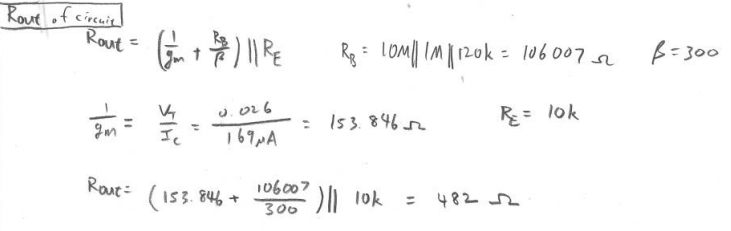 Rout of circuit
Rout = (1/gm + RB/β) || RE    RB = 10M || 1M || 120k = 106007 Ω    β = 300
1/gm = VT/IC = 0.026/169μA = 153.846 Ω    RE = 10k
Rout = (153.846 + 106007/300) || 10k = 482 Ω